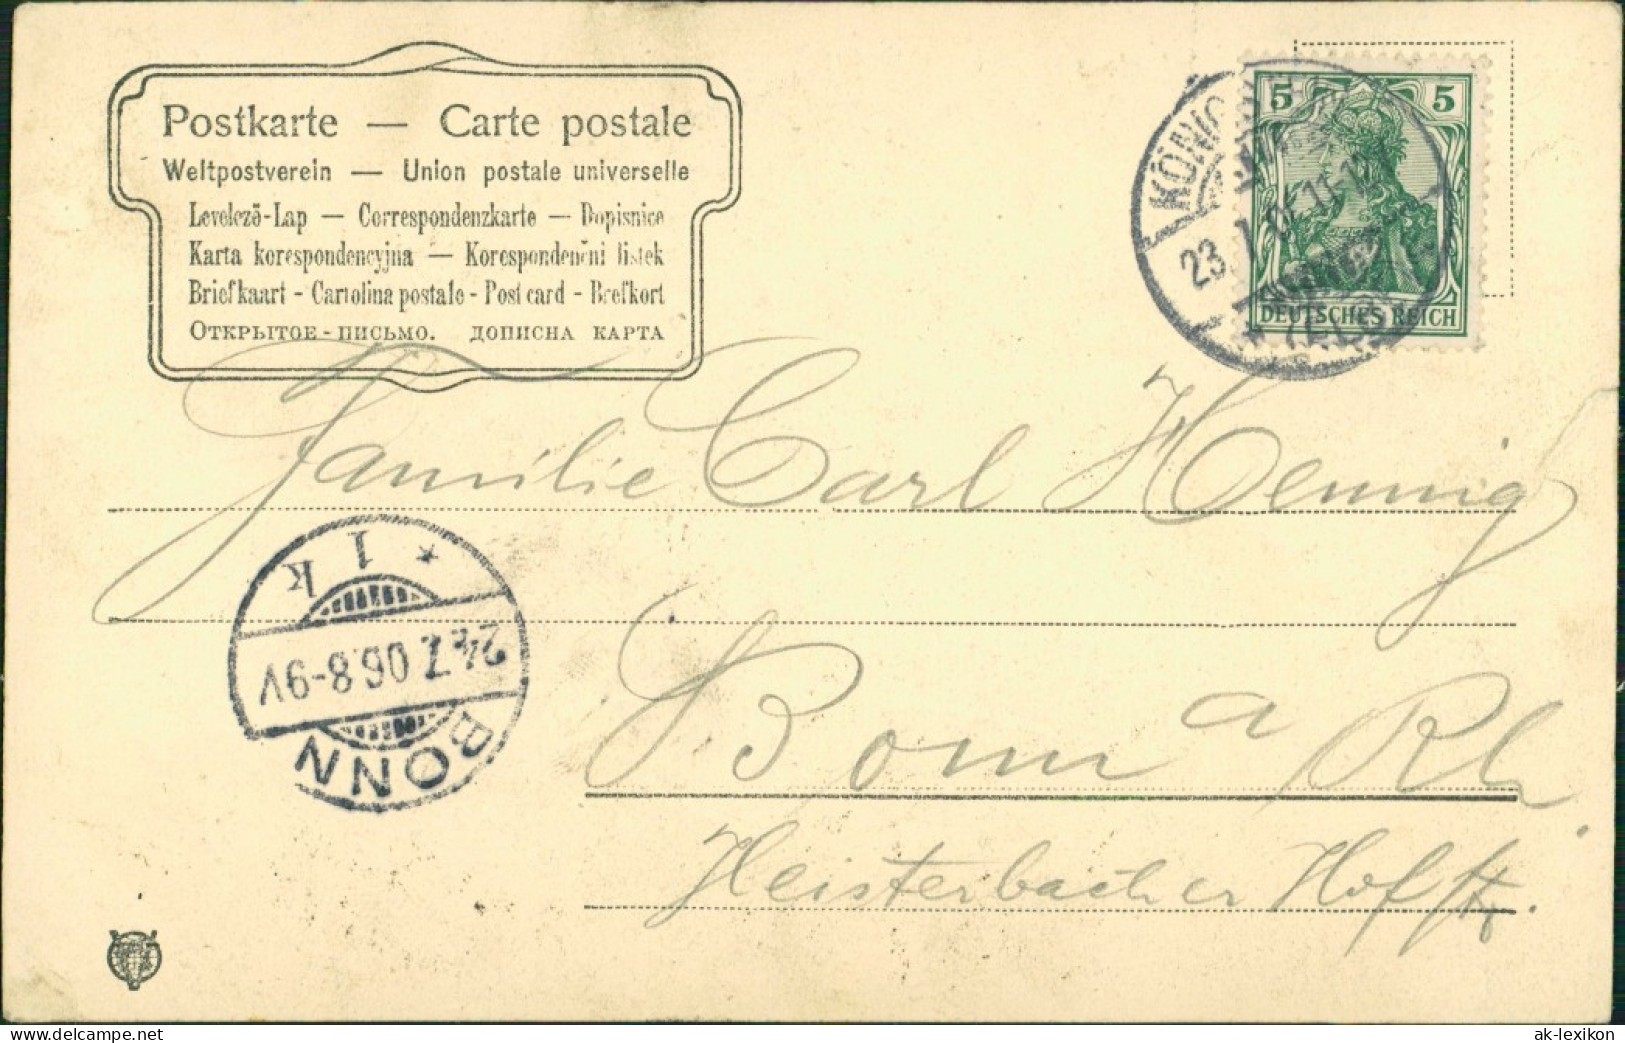 Postkarte — Carte postale
Weltpostverein — Union postale universelle
Levelező-Lap — Correspondenzkarte — Dopisnice
Karta korespondencyjna — Korespondenčni listek
Briefkaart - Cartolina postale - Post card - Brefkort
ОТКРЫТОЕ-ПИСЬМО. ДОПИСНА КАРТА
5 5
DEUTSCHES REICH
23.
11-12
Familie Carl Hennig
* 1 k
24.7.06.8-9V
BONN
Bonn a Rh
Heisterbacher Hofstr.
delcampe.net
The_Collectors_Marketplace
ak-lexikon